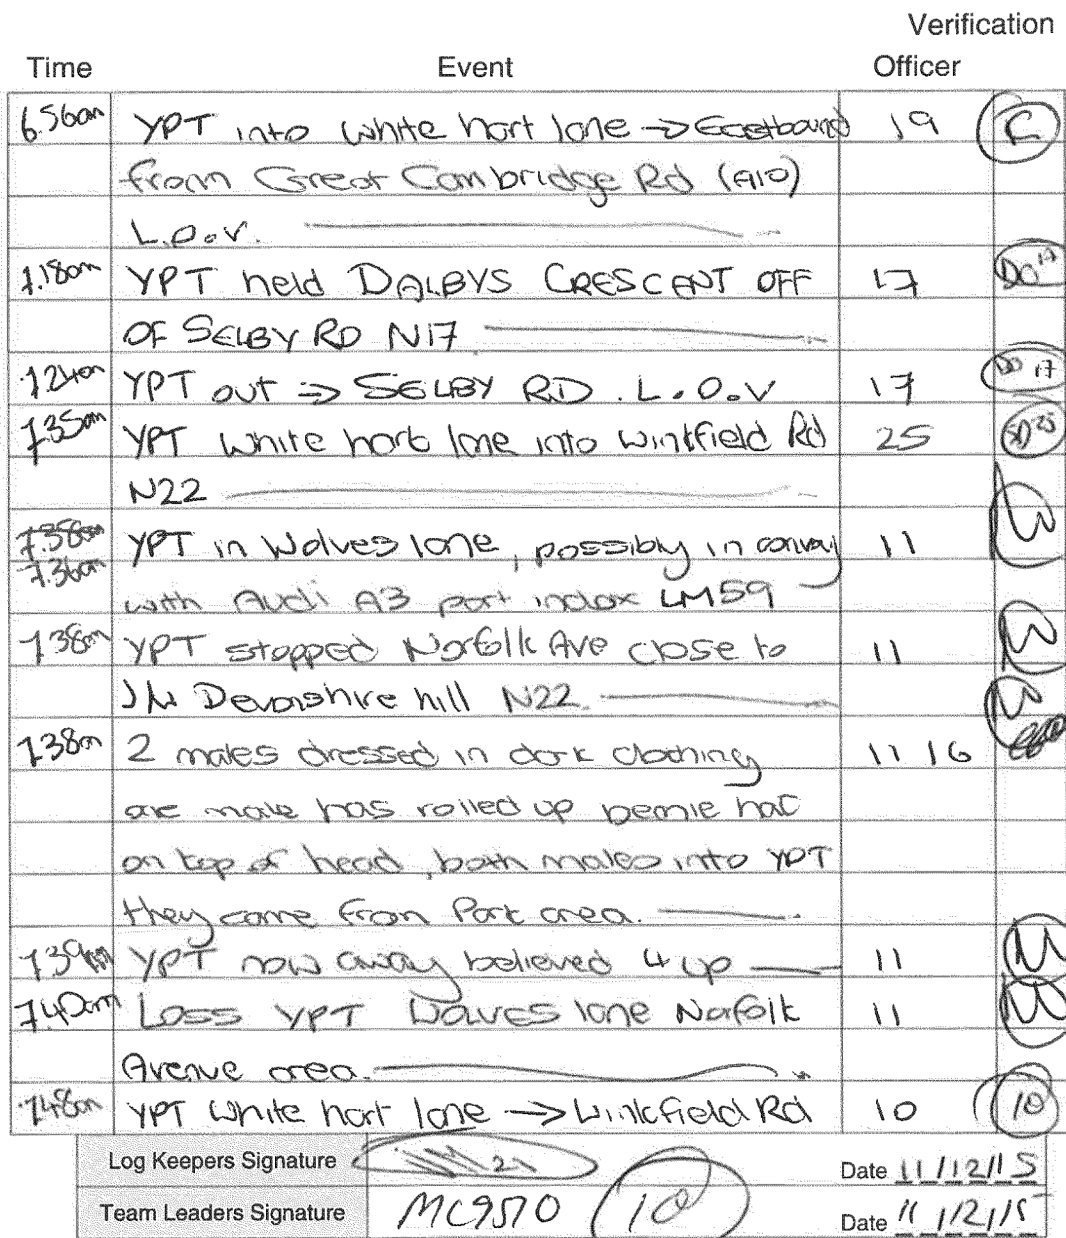 Verification
Time Event Officer
6.56am YPT into white hart lane → Eastbound 19
from Great Cambridge Rd (A10)
L.O.V.
7.18am YPT held DALBYS CRESCENT OFF 17 DO 17
OF SELBY RD N17
7.24am YPT out → SELBY RD. L.O.V 17 DO 17
7.35am YPT white hart lane into winkfield Rd 25 25
N22
7.38am YPT in Wolves lane, possibly in convoy 11
7.36am
with Audi A3 part index LM59
7.38am YPT stopped Norfolk Ave close to 11
J/W Devonshire hill N22.
7.38am 2 males dressed in dark clothing 11 16
one male has rolled up beanie hat
on top of head, both males into YPT
they came from Park area.
7.39am YPT now away believed 4 up 11
7.40am Loss YPT Wolves lane Norfolk 11
Avenue area.
7.48am YPT white hart lane → Winkfield Rd 10 10
Log Keepers Signature 21 Date 11/12/15
Team Leaders Signature MC9570 10 Date 11/12/15